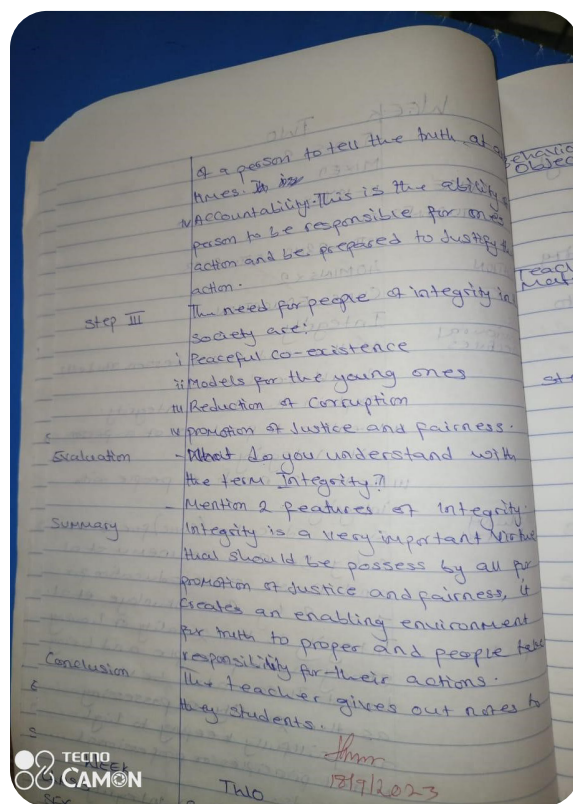 of a person to tell the truth at
times.
iv Accountability: This is the ability
person to be responsible for ones
action and be prepared to Justify
action.
Step III
The need for people of integrity in
society are:
i Peaceful co-existence
ii Models for the young ones
iii Reduction of Corruption
iv promotion of Justice and fairness.
Evaluation - What do you understand with
the term Integrity?
- Mention 2 features of Integrity.
Summary Integrity is a very important Virtue
that should be possess by all for
promotion of Justice and fairness, it
creates an enabling environment
for truth to proper and people take
responsibility for their actions.
Conclusion The teacher gives out notes to
they students.
18/9/2023
WEEK TWO
Behavio
Object
Teach
Mat
St
TECNO
CAMON